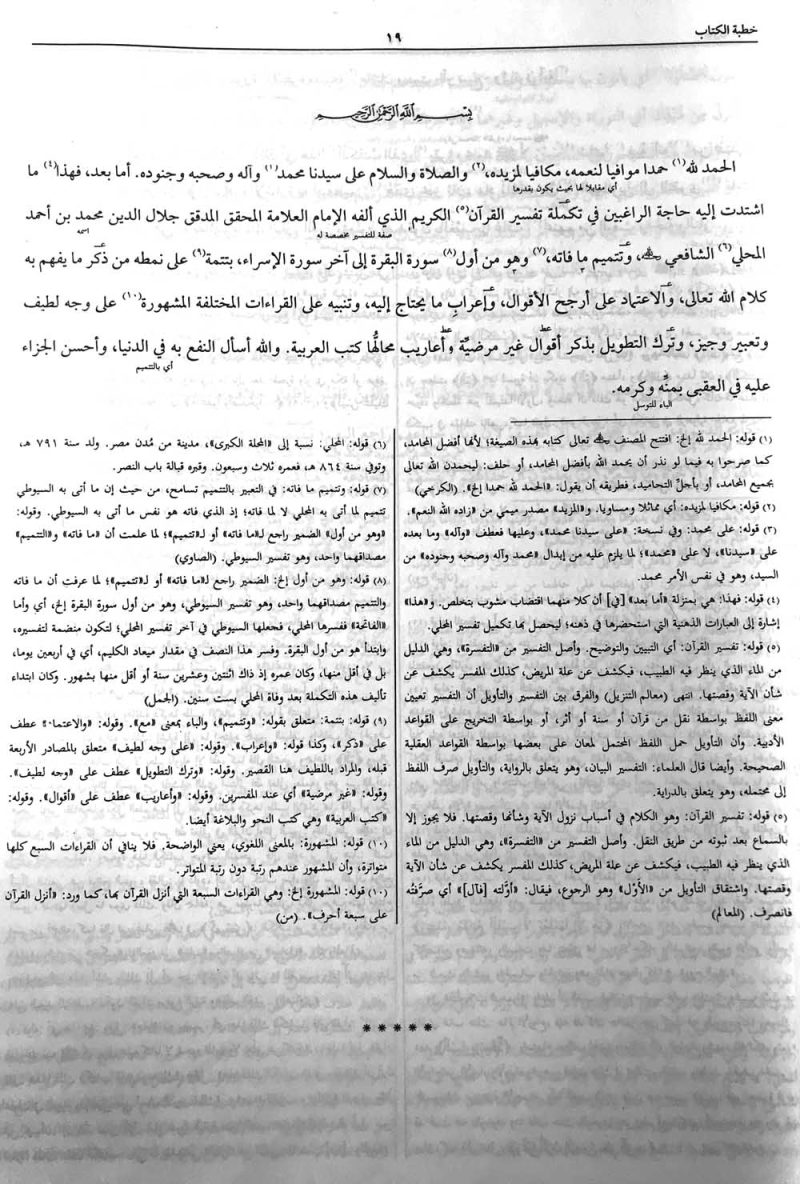 خطبة الكتاب
١٩
بسم الله الرحمن الرحيم
الحمد لله(١) حمدا موافيا لنعمه، مكافيا لمزيده،(٢) والصلاة والسلام على سيدنا محمد(٣) وآله وصحبه وجنوده. أما بعد، فهذا(٤) ما
أي مقابلا لها بحيث يكون بقدرها
اشتدت إليه حاجة الراغبين في تكملة تفسير القرآن(٥) الكريم الذي ألفه الإمام العلامة المحقق المدقق جلال الدين محمد بن أحمد
صفة للتفسير مخصصة له
اسمه
المحلي(٦) الشافعي ﷺ، وتتميم ما فاته،(٧) وهو من أول(٨) سورة البقرة إلى آخر سورة الإسراء، بتتمة(٩) على نمطه من ذكر ما يفهم به
كلام الله تعالى، والاعتماد على أرجح الأقوال، وإعراب ما يحتاج إليه، وتنبيه على القراءات المختلفة المشهورة(١٠) على وجه لطيف
وتعبير وجيز، وترك التطويل بذكر أقوال غير مرضيّة وأعاريب محالّها كتب العربية. والله أسأل النفع به في الدنيا، وأحسن الجزاء
أي بالتتميم
عليه في العقبى بمنّه وكرمه.
الباء للتوسل
(١) قوله: الحمد لله إلخ: افتتح المصنف تعالى كتابه بهذه الصيغة؛ لأنها أفضل المحامد،
كما صرحوا به فيما لو نذر أن يحمد الله بأفضل المحامد، أو حلف: ليحمدن الله تعالى
بجميع المحامد، أو بأجلِّ التحاميد، فطريقه أن يقول: «الحمد لله حمدا إلخ». (الكرخي)
(٢) قوله: مكافيا لمزيده: أي مماثلا ومساويا. و«المزيد» مصدر ميمي من «زاده الله النعم».
(٣) قوله: على محمد: وفي نسخة: «على سيدنا محمد»، وعليها فعطف «وآله» وما بعده
على «سيدنا»، لا على «محمد»؛ لما يلزم عليه من إبدال «محمد وآله وصحبه وجنوده» من
السيد، وهو في نفس الأمر محمد.
(٤) قوله: فهذا: هي بمنزلة «أما بعد» [في] أن كلا منهما اقتضاب مشوب بتخلص. و«هذا»
إشارة إلى العبارات الذهنية التي استحضرها في ذهنه؛ ليحصل بها تكميل تفسير المحلي.
(٥) قوله: تفسير القرآن: أي التبيين والتوضيح. وأصل التفسير من «التفسرة»، وهي الدليل
من الماء الذي ينظر فيه الطبيب، فيكشف عن علة المريض، كذلك المفسر يكشف عن
شأن الآية وقصتها. انتهى (معالم التنزيل) والفرق بين التفسير والتأويل أن التفسير تعيين
معنى اللفظ بواسطة نقل من قرآن أو سنة أو أثر، أو بواسطة التخريج على القواعد
الأدبية. وأن التأويل حمل اللفظ المحتمل لمعان على بعضها بواسطة القواعد العقلية
الصحيحة. وأيضا قال العلماء: التفسير البيان، وهو يتعلق بالرواية، والتأويل صرف اللفظ
إلى محتمله، وهو يتعلق بالدراية.
(٥) قوله: تفسير القرآن: وهو الكلام في أسباب نزول الآية وشأنها وقصتها. فلا يجوز إلا
بالسماع بعد ثبوته من طريق النقل. وأصل التفسير من «التفسرة»، وهي الدليل من الماء
الذي ينظر فيه الطبيب، فيكشف عن علة المريض، كذلك المفسر يكشف عن شأن الآية
وقصتها. واشتقاق التأويل من «الأَوْل» وهو الرجوع، فيقال: «أوَّلته [فآل]» أي صرفتُه
فانصرف. (المعالم)
(٦) قوله: المحلي: نسبة إلى «المحلة الكبرى»، مدينة من مُدن مصر. ولد سنة ٧٩١ هـ،
وتوفي سنة ٨٦٤ هـ، فعمره ثلاث وسبعون. وقبره قبالة باب النصر.
(٧) قوله: وتتميم ما فاته: في التعبير بالتتميم تسامح، من حيث إن ما أتى به السيوطي
تتميم لما أتى به المحلي لا لما فاته؛ إذ الذي فاته هو نفس ما أتى به السيوطي. وقوله:
«وهو من أول» الضمير راجع لـ«ما فاته» أو لـ«تتميم»؛ لما علمت أن «ما فاته» و«التتميم»
مصداقهما واحد، وهو تفسير السيوطي. (الصاوي)
(٨) قوله: وهو من أول إلخ: الضمير راجع لـ«ما فاته» أو لـ«تتميم»؛ لما عرفت أن ما فاته
والتتميم مصداقهما واحد، وهو تفسير السيوطي، وهو من أول سورة البقرة إلخ، أي وأما
«الفاتحة» ففسرها المحلي، فجعلها السيوطي في آخر تفسير المحلي؛ لتكون منضمة لتفسيره،
وابتدأ هو من أول البقرة. وفسر هذا النصف في مقدار ميعاد الكليم، أي في أربعين يوما،
بل في أقل منها، وكان عمره إذ ذاك اثنتين وعشرين سنة أو أقل منها بشهور. وكان ابتداء
تأليف هذه التكملة بعد وفاة المحلي بست سنين. (الجمل)
(٩) قوله: بتتمة: متعلق بقوله: «وتتميم»، والباء بمعنى «مع». وقوله: «والاعتماد» عطف
على «ذكر»، وكذا قوله: «وإعراب». وقوله: «على وجه لطيف» متعلق بالمصادر الأربعة
قبله، والمراد باللطيف هنا القصير. وقوله: «وترك التطويل» عطف على «وجه لطيف».
وقوله: «غير مرضية» أي عند المفسرين. وقوله: «وأعاريب» عطف على «أقوال». وقوله:
«كتب العربية» وهي كتب النحو والبلاغة أيضا.
(١٠) قوله: المشهورة: بالمعنى اللغوي، يعني الواضحة. فلا ينافي أن القراءات السبع كلها
متواترة، وأن المشهور عندهم رتبة دون رتبة المتواتر.
(١٠) قوله: المشهورة إلخ: وهي القراءات السبعة التي أنزل القرآن بها، كما ورد: «أنزل القرآن
على سبعة أحرف». (من)
*****